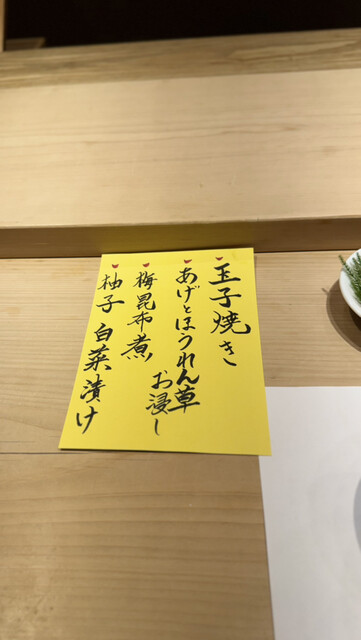 玉子焼き
あげとほうれん草
お浸し
梅昆布煮
柚子 白菜漬け